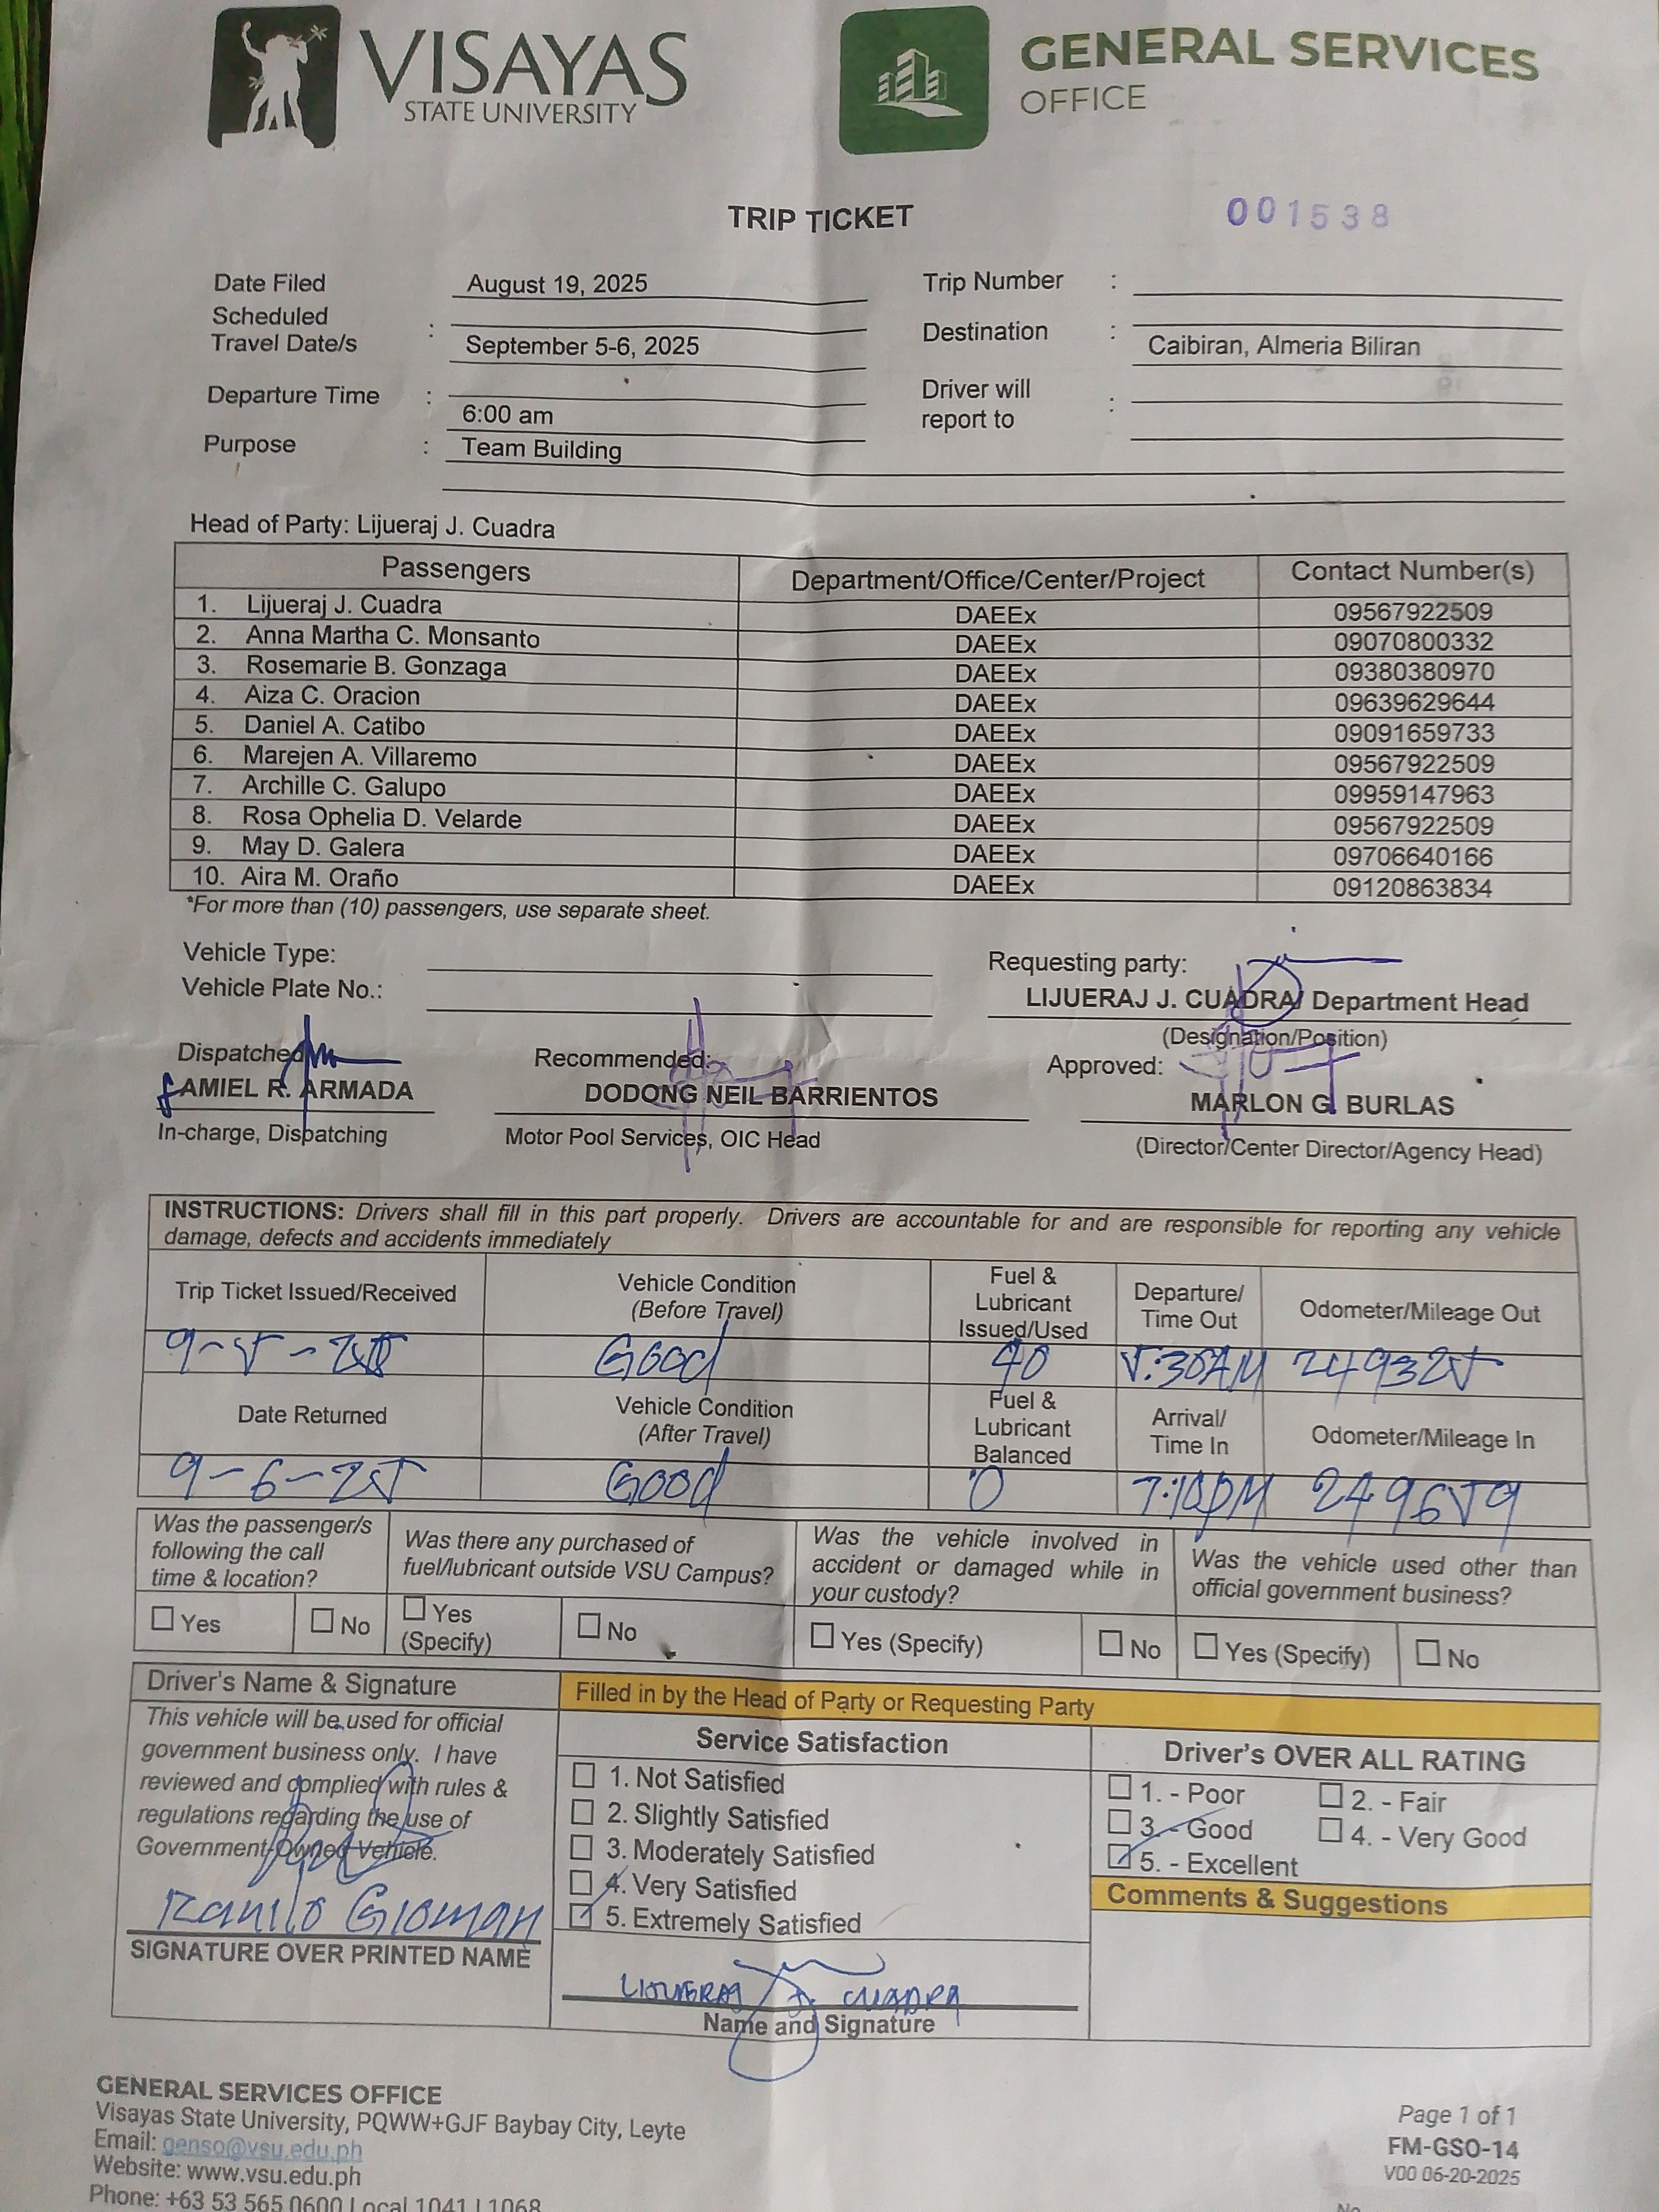 VISAYAS
STATE UNIVERSITY
GENERAL SERVICES
OFFICE
TRIP TICKET
001538
Date Filed August 19, 2025
Trip Number :
Scheduled
Travel Date/s : September 5-6, 2025
Destination : Caibiran, Almeria Biliran
Departure Time : 6:00 am
Driver will
report to :
Purpose : Team Building
Head of Party: Lijueraj J. Cuadra
Passengers Department/Office/Center/Project Contact Number(s)
1. Lijueraj J. Cuadra DAEEx 09567922509
2. Anna Martha C. Monsanto DAEEx 09070800332
3. Rosemarie B. Gonzaga DAEEx 09380380970
4. Aiza C. Oracion DAEEx 09639629644
5. Daniel A. Catibo DAEEx 09091659733
6. Marejen A. Villaremo DAEEx 09567922509
7. Archille C. Galupo DAEEx 09959147963
8. Rosa Ophelia D. Velarde DAEEx 09567922509
9. May D. Galera DAEEx 09706640166
10. Aira M. Oraño DAEEx 09120863834
*For more than (10) passengers, use separate sheet.
Vehicle Type:
Vehicle Plate No.:
Requesting party:
LIJUERAJ J. CUADRA/ Department Head
(Designation/Position)
Dispatched
AMIEL R. ARMADA
In-charge, Dispatching
Recommended:
DODONG NEIL BARRIENTOS
Motor Pool Services, OIC Head
Approved:
MARLON G. BURLAS
(Director/Center Director/Agency Head)
INSTRUCTIONS: Drivers shall fill in this part properly. Drivers are accountable for and are responsible for reporting any vehicle
damage, defects and accidents immediately
Trip Ticket Issued/Received
Vehicle Condition
(Before Travel)
Fuel &
Lubricant
Issued/Used
Departure/
Time Out
Odometer/Mileage Out
9-5-25 Good 40 5:30AM 249325
Date Returned
Vehicle Condition
(After Travel)
Fuel &
Lubricant
Balanced
Arrival/
Time In
Odometer/Mileage In
9-6-25 Good 0 7:10PM 249659
Was the passenger/s
following the call
time & location?
Was there any purchased of
fuel/lubricant outside VSU Campus?
Was the vehicle involved in
accident or damaged while in
your custody?
Was the vehicle used other than
official government business?
☐ Yes ☐ No ☐ Yes
(Specify) ☐ No ☐ Yes (Specify) ☐ No ☐ Yes (Specify) ☐ No
Driver's Name & Signature
This vehicle will be used for official
government business only. I have
reviewed and complied with rules &
regulations regarding the use of
Government-Owned Vehicle.
Ranilo Gloman
SIGNATURE OVER PRINTED NAME
Filled in by the Head of Party or Requesting Party
Service Satisfaction
☐ 1. Not Satisfied
☐ 2. Slightly Satisfied
☐ 3. Moderately Satisfied
☐ 4. Very Satisfied
☑ 5. Extremely Satisfied
LIJUERAJ J. CUADRA
Name and Signature
Driver's OVER ALL RATING
☐ 1. - Poor ☐ 2. - Fair
☐ 3. - Good ☐ 4. - Very Good
☑ 5. - Excellent
Comments & Suggestions
GENERAL SERVICES OFFICE
Visayas State University, PQWW+GJF Baybay City, Leyte
Email: genso@vsu.edu.ph
Website: www.vsu.edu.ph
Phone: +63 53 565 0600 Local 1041 | 1068
Page 1 of 1
FM-GSO-14
V00 06-20-2025
No.